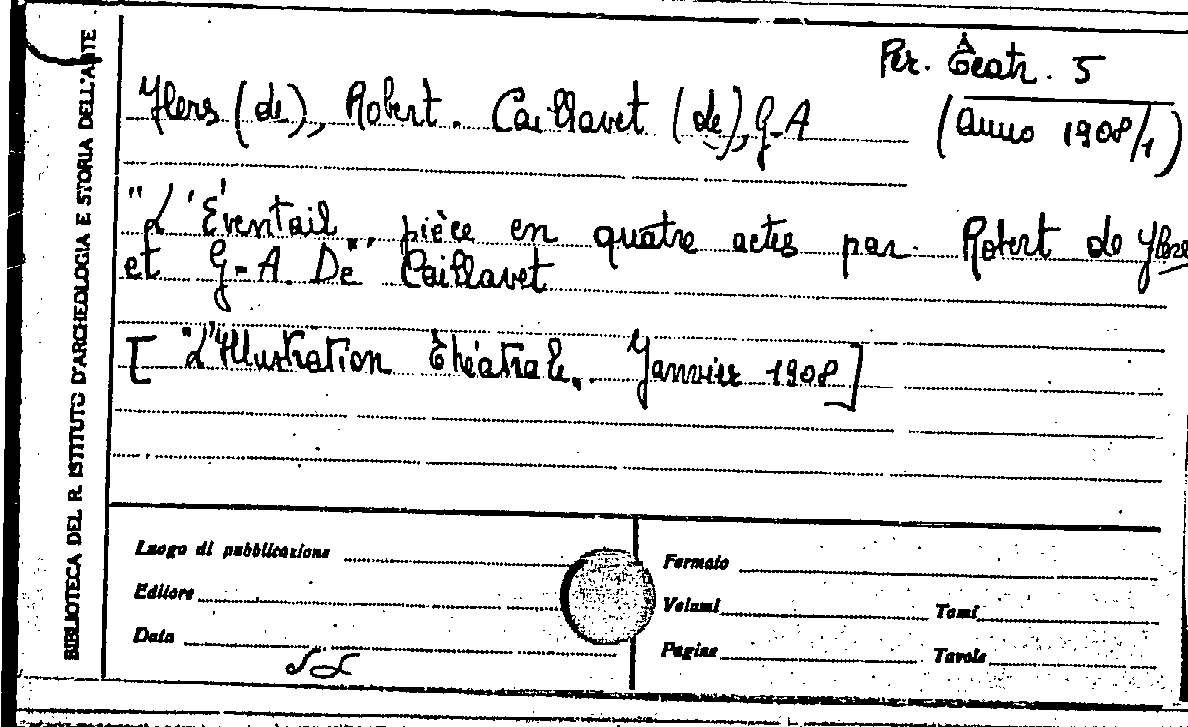 BIBLIOTECA DEL R. ISTITUTO D'ARCHEOLOGIA E STORIA DELL'ARTE
Per. Teatr. 5
(Anno 1908/1)
Flers (de), Robert. Caillavet (de), G-A
"L'Éventail", pièce en quatre actes par Robert de Flers
et G-A. De Caillavet
["L'Illustration Théatrale". Janvier 1908]
Luogo di pubblicazione
Editore
Data
Formato
Volumi Tomi
Pagine Tavole